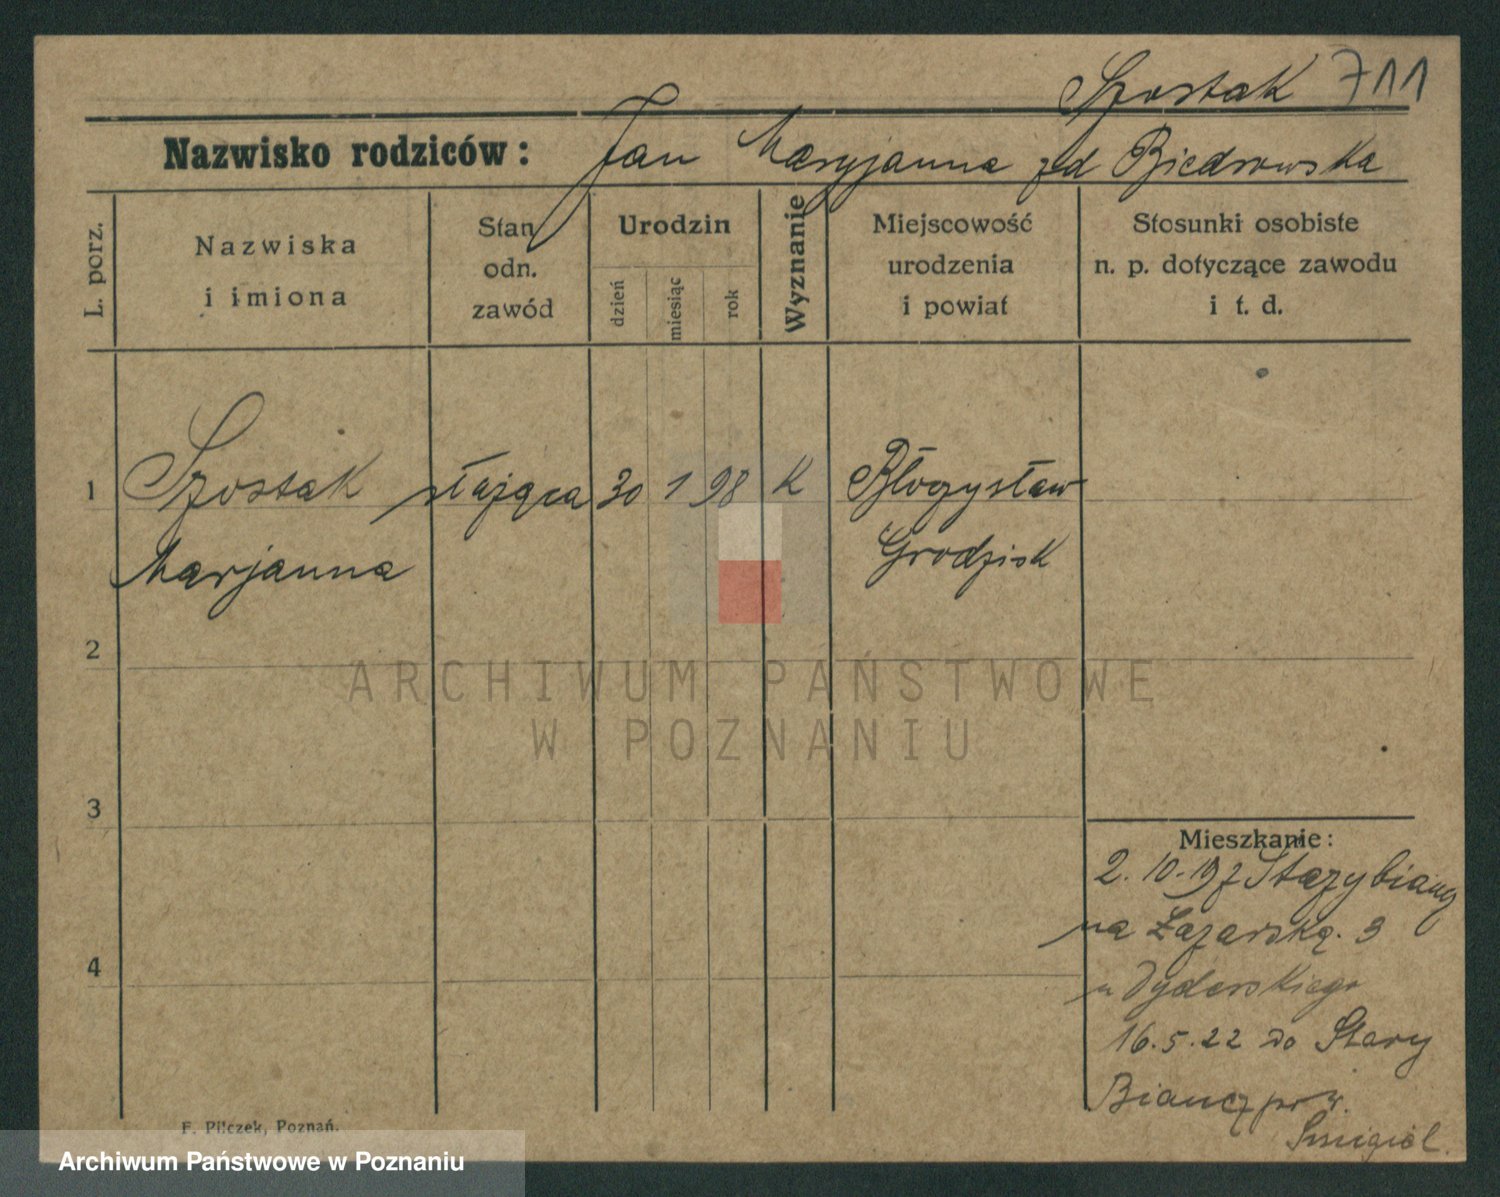 Szostak 711
Nazwisko rodziców: Jan Maryjanna zd Biedrowska
L. porz.
Nazwiska
i imiona
Stan
odn.
zawód
Urodzin
dzień
miesiąc
rok
Wyznanie
Miejscowość
urodzenia
i powiat
Stosunki osobiste
n. p. dotyczące zawodu
i t. d.
1 Szostak służąca 30 1 98 K Błogysław
Marjanna Grodzisk
2
ARCHIWUM PAŃSTWOWE
W POZNANIU
3
Mieszkanie:
2. 10. 19 z Stary
na Łazarską. 3
4
u Dyderskiego
16.5.22 do Stary
Biancz pow.
Śmigiel.
F. Pilczek, Poznań.
Archiwum Państwowe w Poznaniu